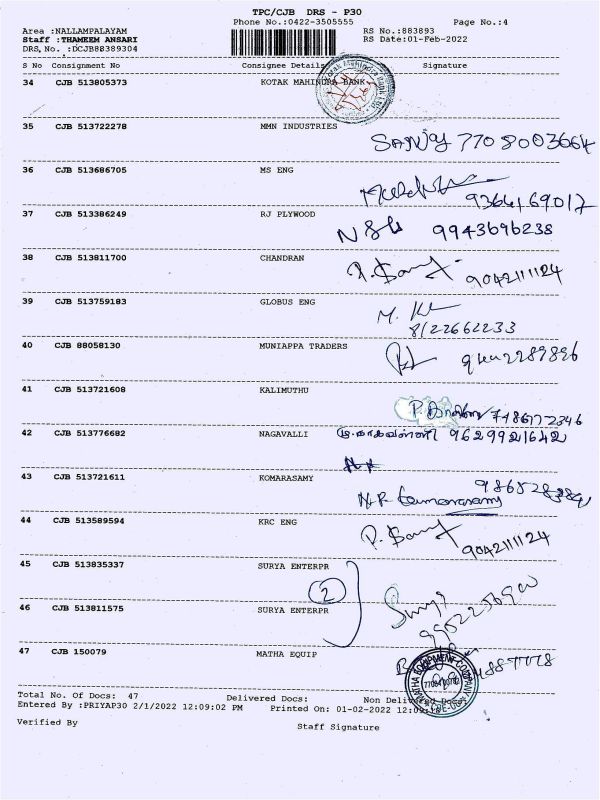 TPC/CJB DRS - P30
Phone No.:0422-3505555 Page No.:4
Area :NALLAMPALAYAM RS No.:883893
Staff :THAMEEM ANSARI RS Date:01-Feb-2022
DRS, No. :DCJB88389304
S No Consignment No Consignee Details Signature
34 CJB 513805373 KOTAK MAHINDRA BANK
35 CJB 513722278 MMN INDUSTRIES
SANJOY 7708003664
36 CJB 513686705 MS ENG
9364169017
37 CJB 513386249 RJ PLYWOOD
9943696238
38 CJB 513811700 CHANDRAN
9042111124
39 CJB 513759183 GLOBUS ENG
8122662233
40 CJB 88058130 MUNIAPPA TRADERS
41 CJB 513721608 KALIMUTHU
42 CJB 513776682 NAGAVALLI 9629921642
43 CJB 513721611 KOMARASAMY
44 CJB 513589594 KRC ENG
9042111124
45 CJB 513835337 SURYA ENTERPR
2
46 CJB 513811575 SURYA ENTERPR
Surya
47 CJB 150079 MATHA EQUIP
Total No. Of Docs: 47 Delivered Docs: Non Delivered Docs:
Entered By :PRIYAP30 2/1/2022 12:09:02 PM Printed On: 01-02-2022 12:09
Verified By Staff Signature